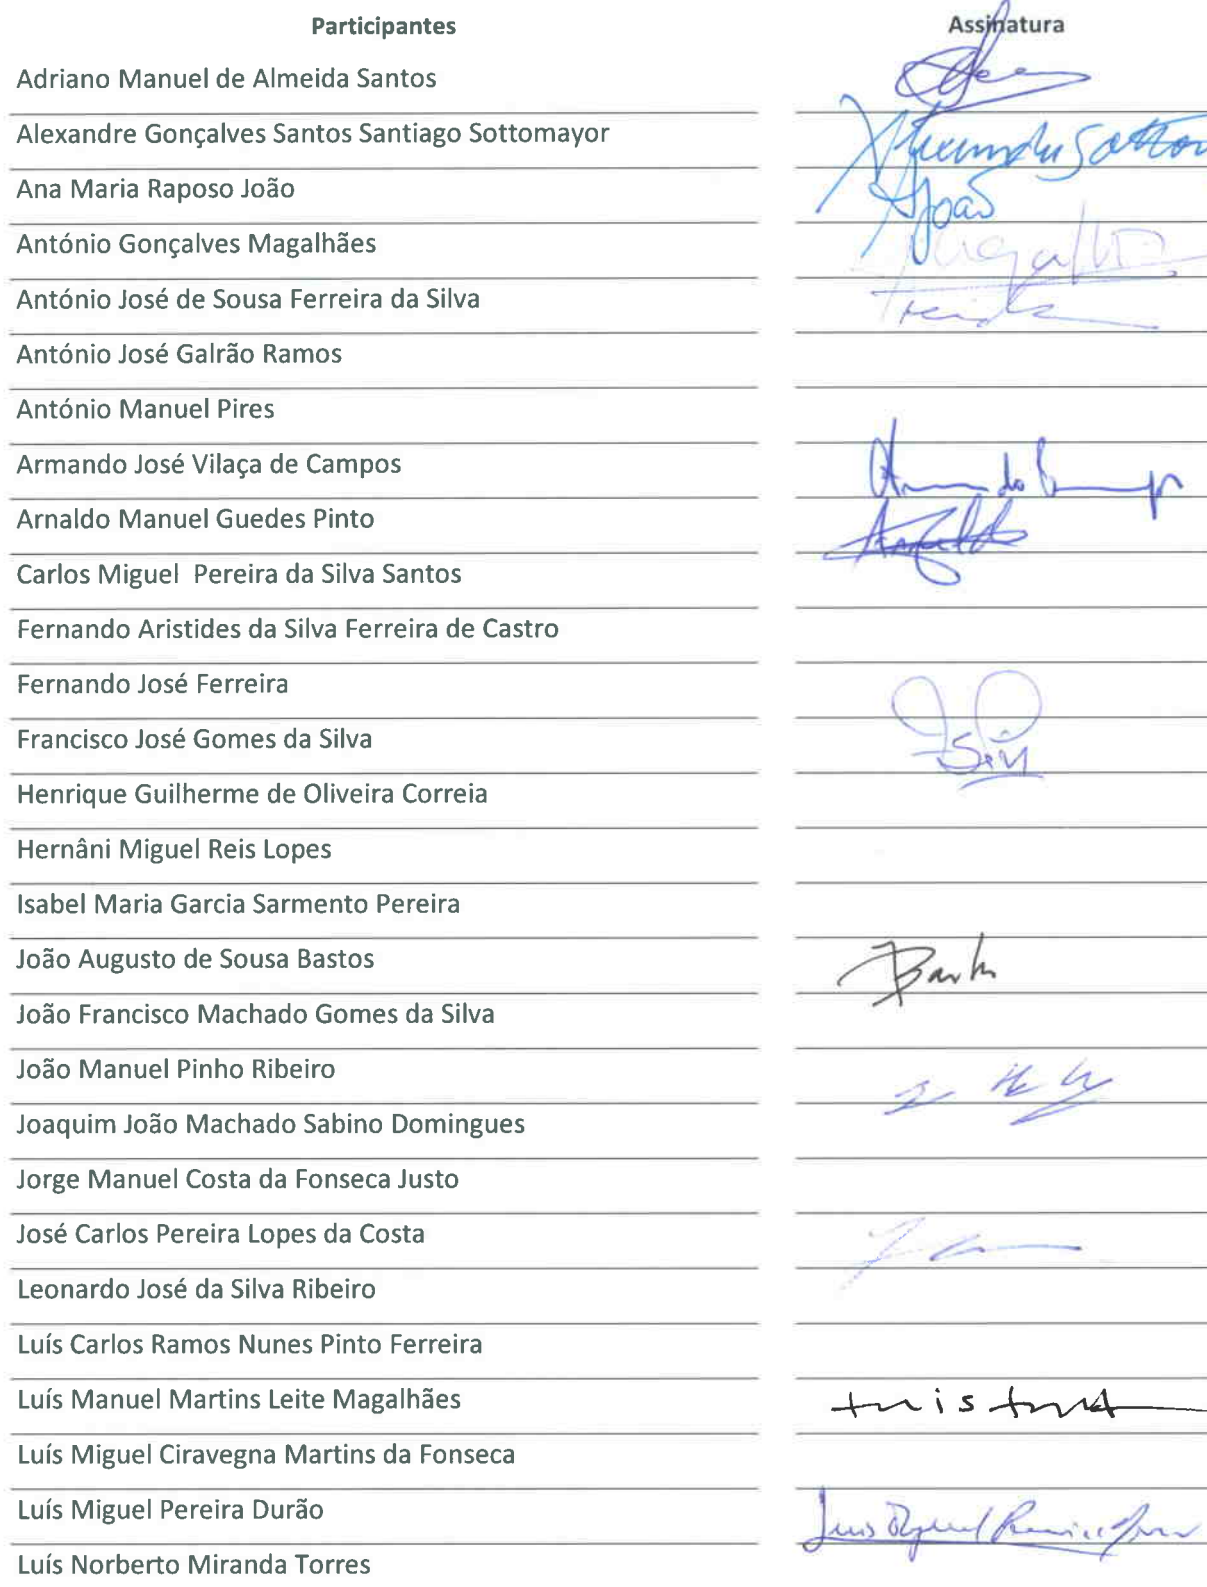 Participantes Assinatura
Adriano Manuel de Almeida Santos
Alexandre Gonçalves Santos Santiago Sottomayor
Ana Maria Raposo João João
António Gonçalves Magalhães
António José de Sousa Ferreira da Silva
António José Galrão Ramos
António Manuel Pires
Armando José Vilaça de Campos
Arnaldo Manuel Guedes Pinto
Carlos Miguel Pereira da Silva Santos
Fernando Aristides da Silva Ferreira de Castro
Fernando José Ferreira
Francisco José Gomes da Silva
Henrique Guilherme de Oliveira Correia
Hernâni Miguel Reis Lopes
Isabel Maria Garcia Sarmento Pereira
João Augusto de Sousa Bastos
João Francisco Machado Gomes da Silva
João Manuel Pinho Ribeiro
Joaquim João Machado Sabino Domingues
Jorge Manuel Costa da Fonseca Justo
José Carlos Pereira Lopes da Costa
Leonardo José da Silva Ribeiro
Luís Carlos Ramos Nunes Pinto Ferreira
Luís Manuel Martins Leite Magalhães
Luís Miguel Ciravegna Martins da Fonseca
Luís Miguel Pereira Durão
Luís Norberto Miranda Torres